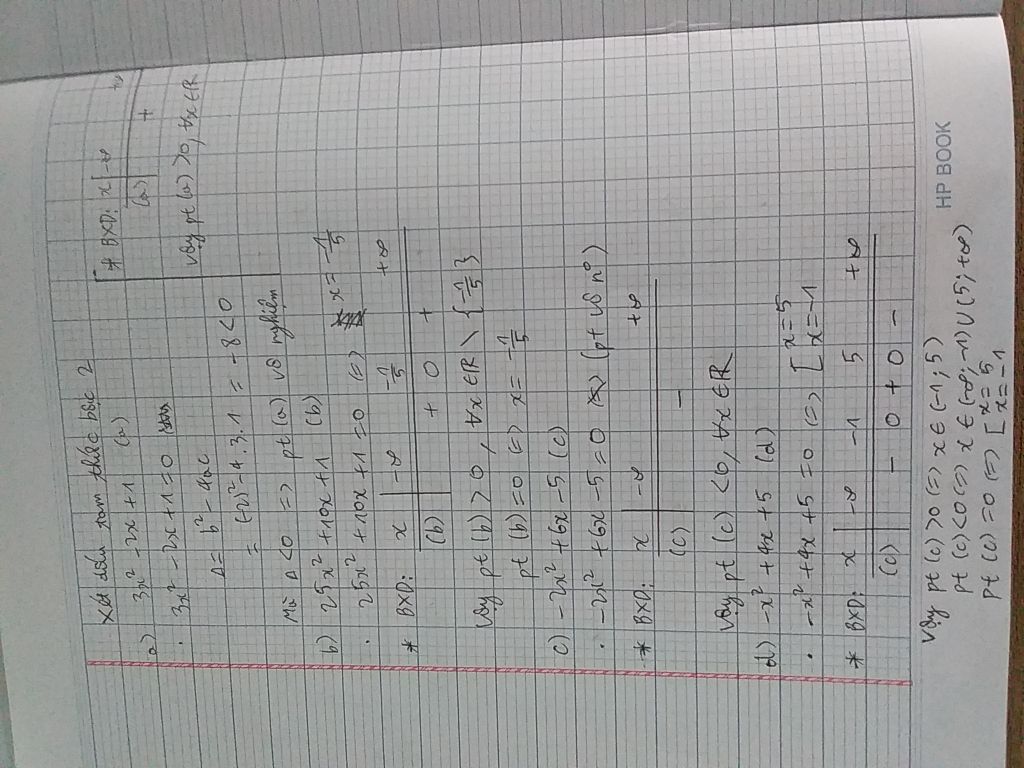 Xét dấu tam thức bậc 2
a) 3x² - 2x + 1 (a)
. 3x² - 2x + 1 = 0
Δ = b² - 4ac
= (-2)² - 4.3.1 = -8 < 0
Mà Δ < 0 => pt (a) vô nghiệm
* BXD: x | -∞ +∞
(a) | +
Vậy pt (a) > 0, ∀x ∈ R
b) 25x² + 10x + 1 (b)
. 25x² + 10x + 1 = 0 (=) x = -1/5
* BXD: x | -∞ -1/5 +∞
(b) | + 0 +
Vậy pt (b) > 0, ∀x ∈ R \ {-1/5}
pt (b) = 0 (=) x = -1/5
c) -2x² + 6x - 5 (c)
. -2x² + 6x - 5 = 0 (pt vô n°)
* BXD: x | -∞ +∞
(c) | -
Vậy pt (c) < 0, ∀x ∈ R
d) -x² + 4x + 5 (d)
. -x² + 4x + 5 = 0 (=) [ x = 5
x = -1
* BXD: x | -∞ -1 5 +∞
(c) | - 0 + 0 -
Vậy pt (c) > 0 (=) x ∈ (-1; 5)
pt (c) < 0 (=) x ∈ (-∞; -1) ∪ (5; +∞)
pt (c) = 0 (=) [ x = 5
x = -1
HP BOOK